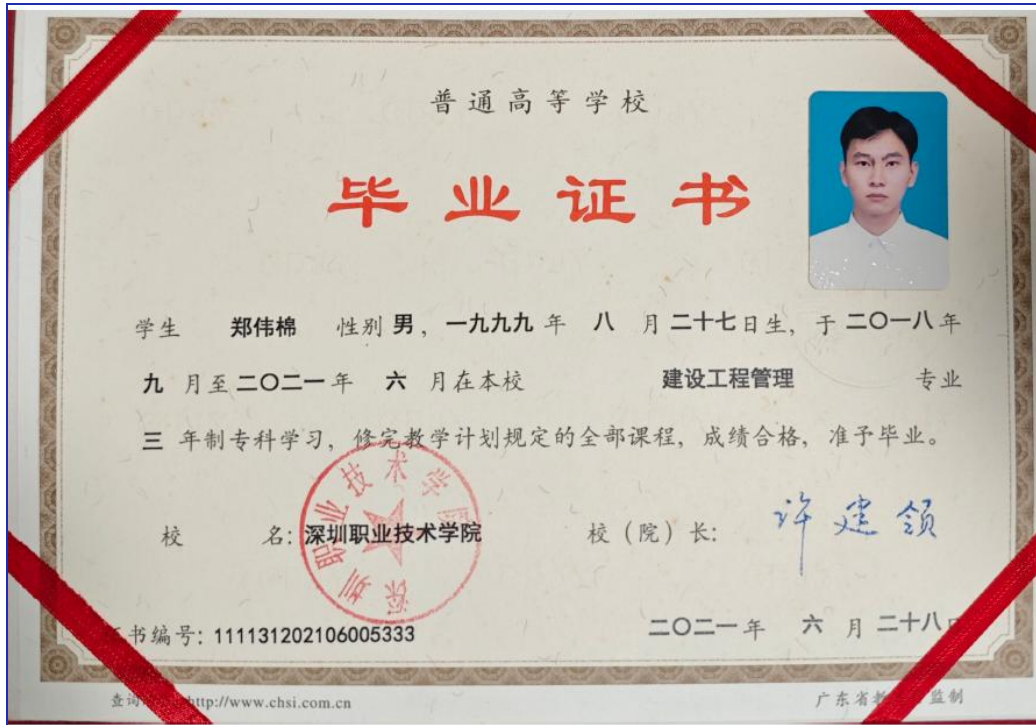 普通高等学校
毕业证书
学生 郑伟棉 性别 男, 一九九九 年 八 月 二十七日生, 于 二〇一八 年
九 月至 二〇二一 年 六 月在本校 建设工程管理 专业
三 年制专科学习, 修完教学计划规定的全部课程, 成绩合格, 准予毕业。
校 名: 深圳职业技术学院 校(院)长: 许建领
深圳职业技术学院
书编号: 111131202106005333 二〇二一 年 六 月 二十八
查询 http://www.chsi.com.cn 广东省教 监制